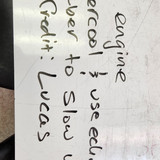 engine
ercool & use
ber to slow
Credit: Lucas